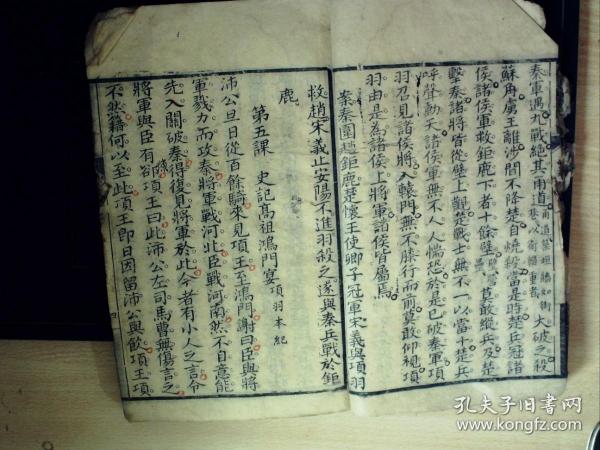 秦軍遇九戰絕其甬道甬道築垣牆如街
巷以術輜重者大破之殺
蘇角虜王離涉間不降楚自燒殺當是時楚兵冠諸
侯諸侯軍救鉅鹿下者十餘壁莫敢縱兵及楚
擊秦諸將皆從壁上觀楚戰士無不一以當十楚兵
呼聲動天諸侯軍無不人人惴恐於是已破秦軍項
羽召見諸侯將入轅門無不膝行而前莫敢仰視項
羽由是為諸侯上將軍諸侯皆屬焉
案秦圍趙鉅鹿楚懷王使卿子冠軍宋義與項羽
救趙宋義止安陽不進羽殺之遂與秦兵戰於鉅
鹿
第五課 史記高祖鴻門宴項羽本紀
沛公旦日從百餘騎來見項王至鴻門謝曰臣與將
軍戮力而攻秦將軍戰河北臣戰河南然不自意能
先入關破秦得復見將軍於此今者有小人之言令
將軍與臣有郤項王曰此沛公左司馬曹無傷言之
不然籍何以至此項王即日因留沛公與飲項王項
孔夫子旧书网
www.kongfz.com